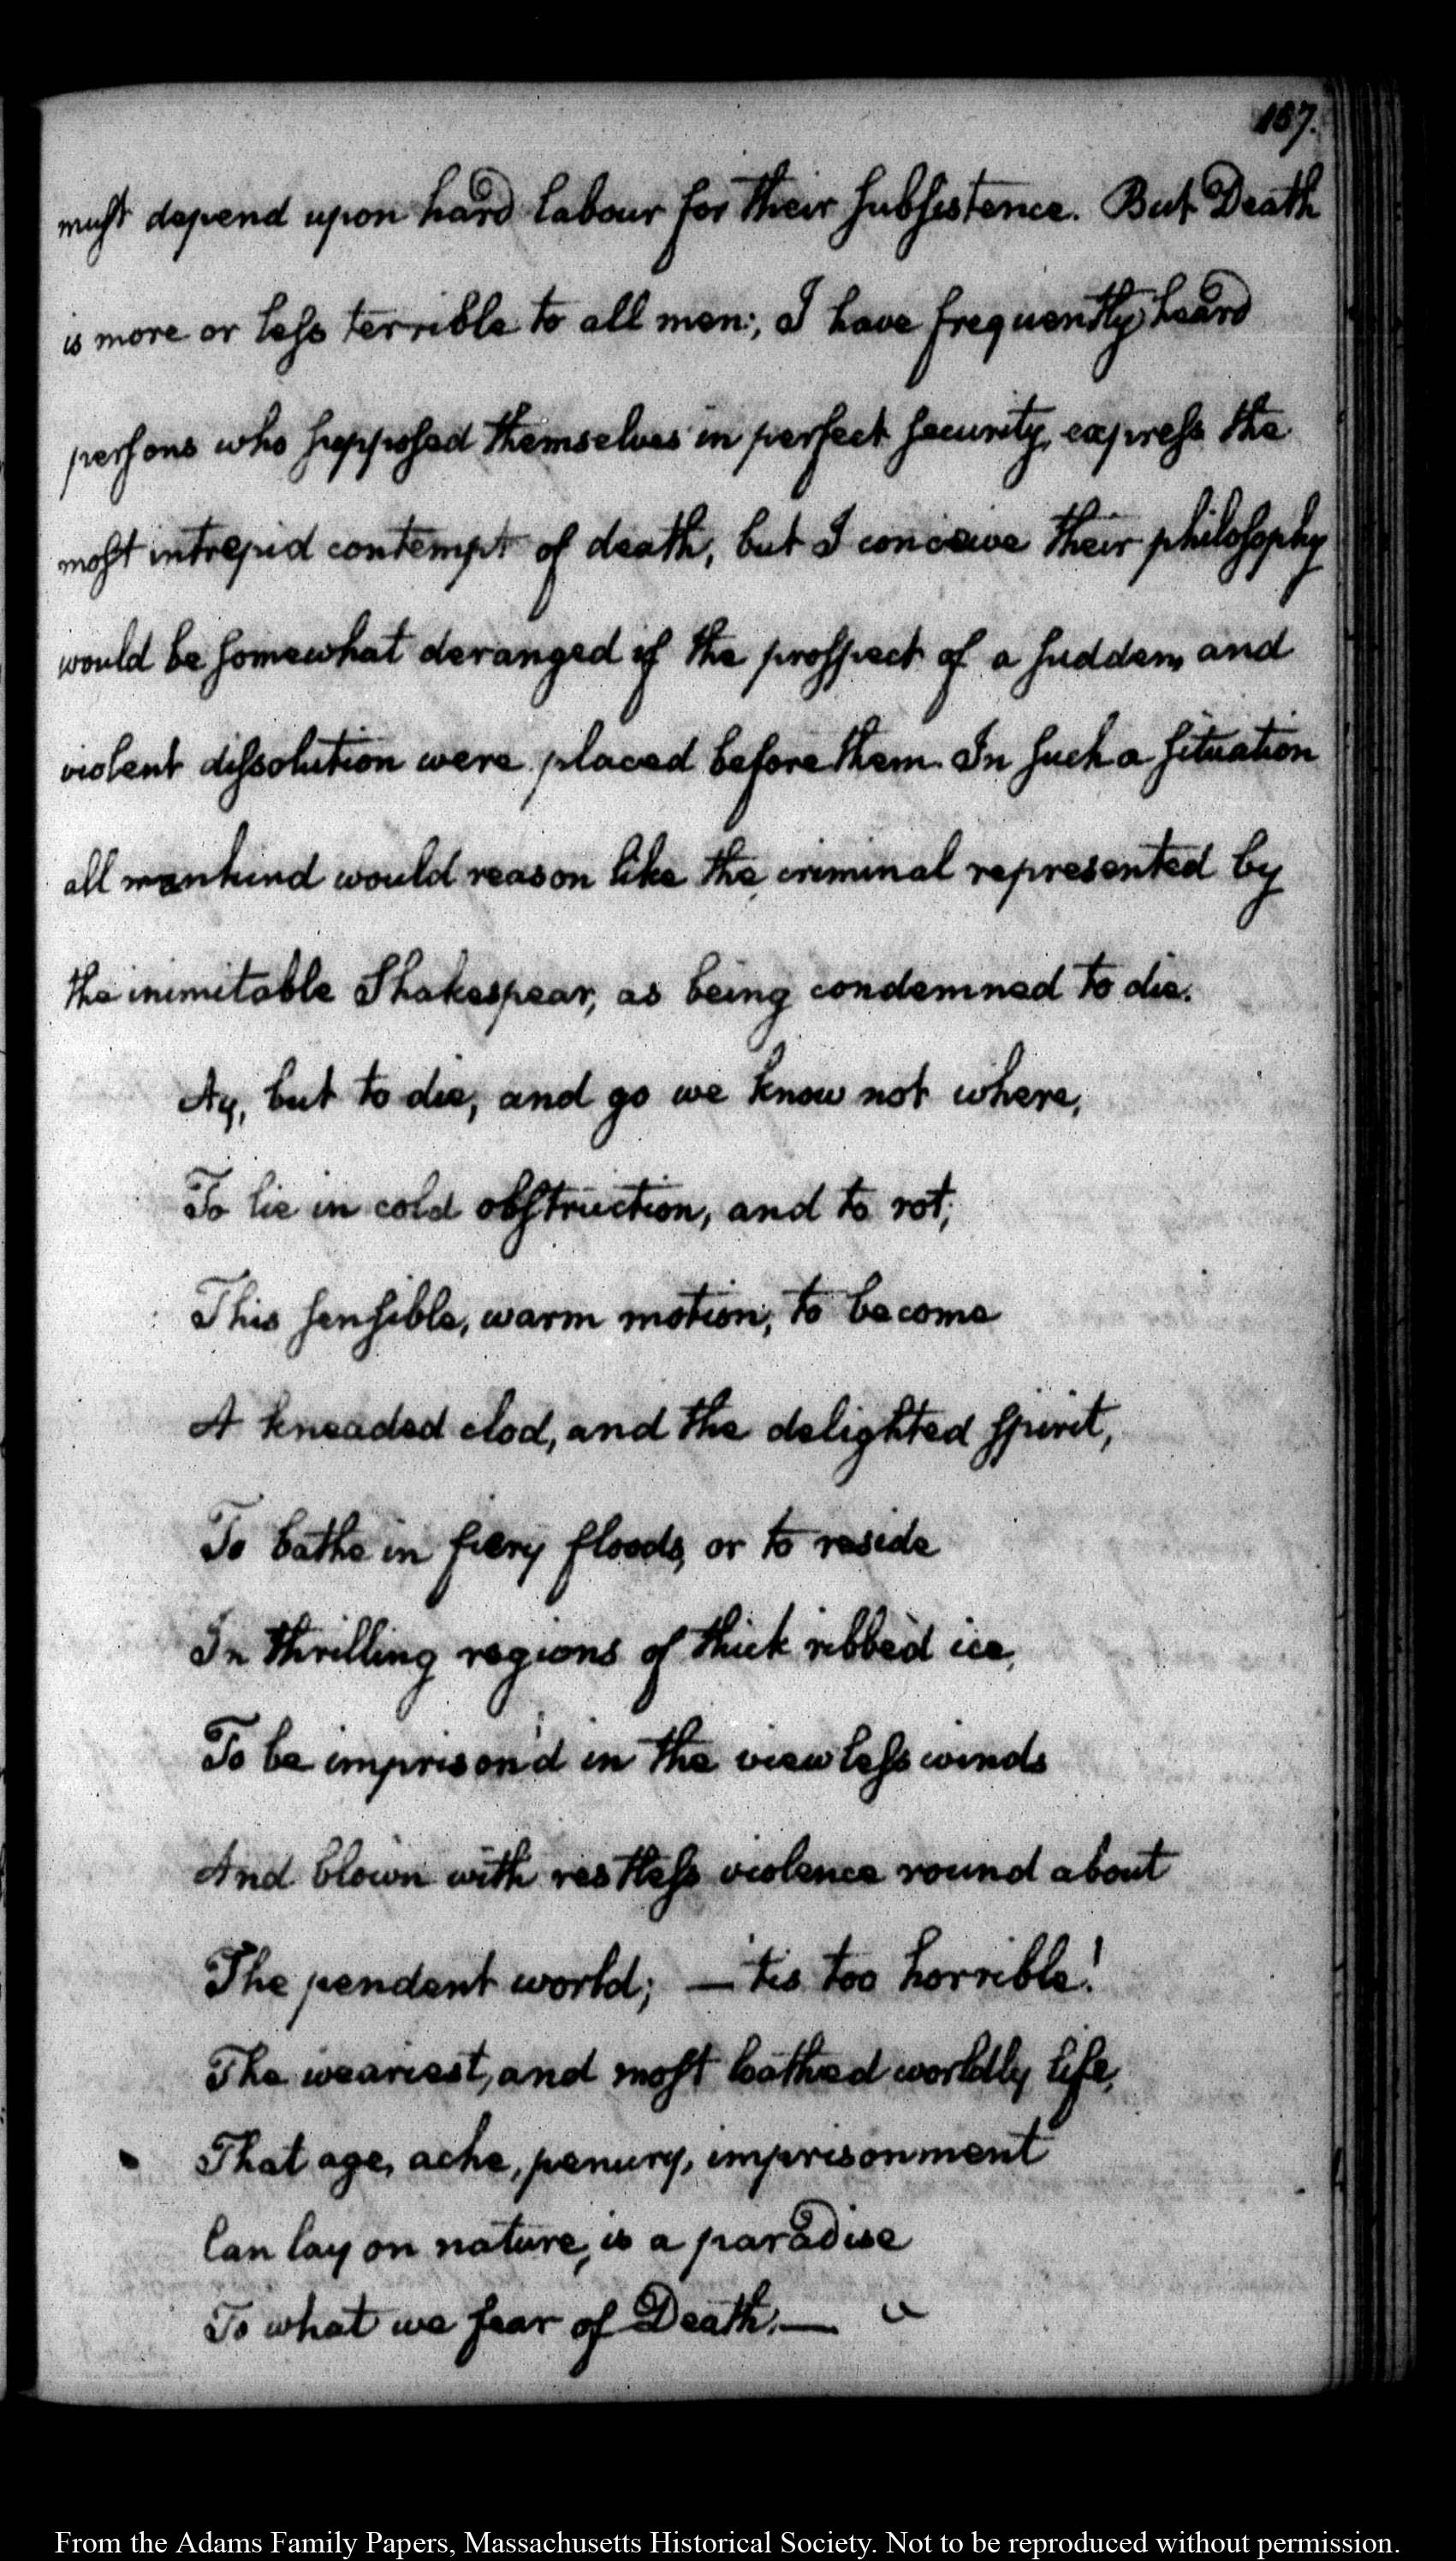 187.
must depend upon hard labour for their subsistence. But Death
is more or less terrible to all men; I have frequently heard
persons who supposed themselves in perfect security, express the
most intrepid contempt of death, but I conceive their philosophy
would be somewhat deranged if the prospect of a sudden and
violent dissolution were placed before them. In such a situation
all mankind would reason like the criminal represented by
the inimitable Shakespear, as being condemned to die.
Ay, but to die, and go we know not where,
To lie in cold obstruction, and to rot;
This sensible, warm motion, to become
A kneaded clod, and the delighted spirit,
To bathe in fiery floods, or to reside
In thrilling regions of thick ribbed ice,
To be imprison'd in the viewless winds
And blown with restless violence round about
The pendent world; — 'tis too horrible!
The weariest, and most loathed worldly life,
That age, ache, penury, imprisonment
Can lay on nature, is a paradise
To what we fear of Death. —
From the Adams Family Papers, Massachusetts Historical Society. Not to be reproduced without permission.